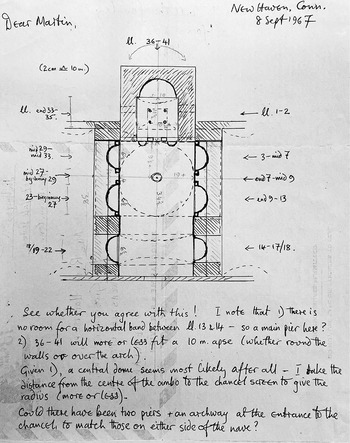 New Haven, Conn.
8 Sept 1967
Dear Martin,
ll. 36-41
(2cm = 10m.)
ll. end 33-
35.
ll. 1-2
mid 29-
mid 33.
3-mid 7
mid 27-
beginning 29
end 7-mid 9
23-beginning
27
end 9-13
18/19-22
14-17/18.
See whether you agree with this! I note that 1) there is
no room for a horizontal band between ll. 13 & 14 - so a main pier here?
2) 36-41 will more or less fit a 10 m. apse (whether round the
walls or over the arch).
Given 1), a central dome seems most likely after all - I take the
distance from the centre of the ambo to the chancel screen to give the
radius (more or less).
Could there have been two piers + an archway at the entrance to the
chancel to match those on either side of the nave?